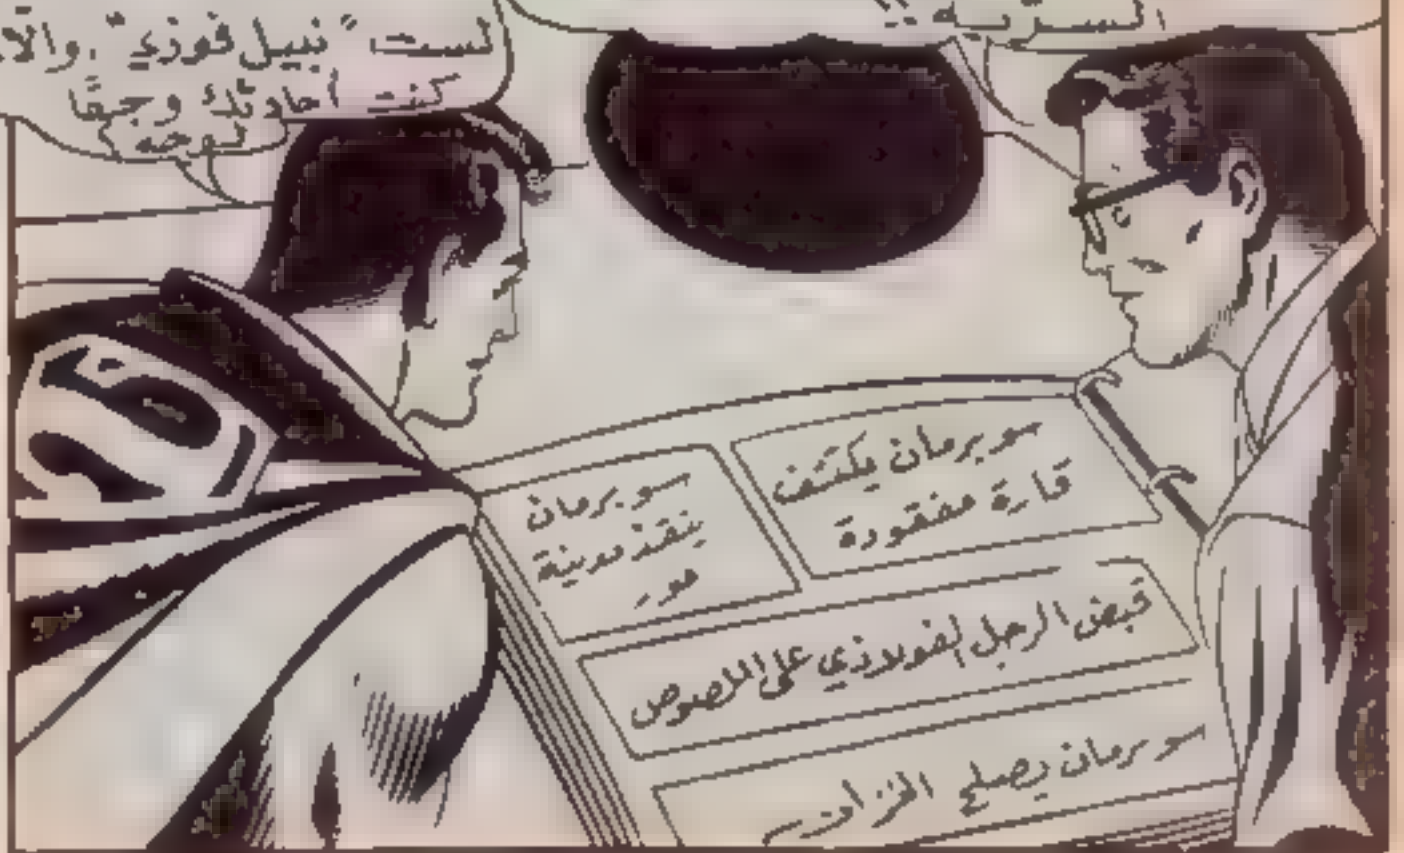 السرّية !!
لست "نبيل فوزي"، والّا
كنت أحادثك وجهًا
لوجه
سوبرمان يكتشف
قارة مفقودة
سوبرمان
ينقذ مدينة
قبض الرجل الفولاذي على اللصوص
سوبرمان يصلح الخزان